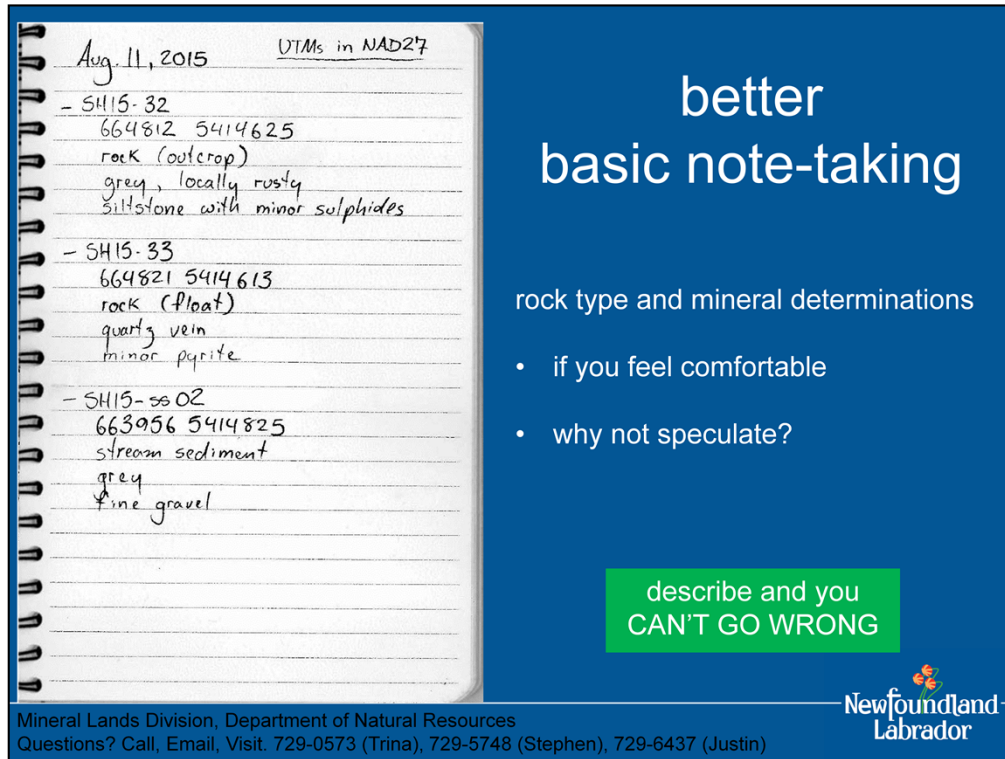 Aug. 11, 2015
UTMs in NAD27
- SH15-32
664812 5414625
rock (outcrop)
grey, locally rusty
siltstone with minor sulphides
- SH15-33
664821 5414613
rock (float)
quartz vein
minor pyrite
- SH15-ss02
663956 5414825
stream sediment
grey
fine gravel
better
basic note-taking
rock type and mineral determinations
• if you feel comfortable
• why not speculate?
describe and you
CAN'T GO WRONG
Mineral Lands Division, Department of Natural Resources
Questions? Call, Email, Visit. 729-0573 (Trina), 729-5748 (Stephen), 729-6437 (Justin)
Newfoundland
Labrador